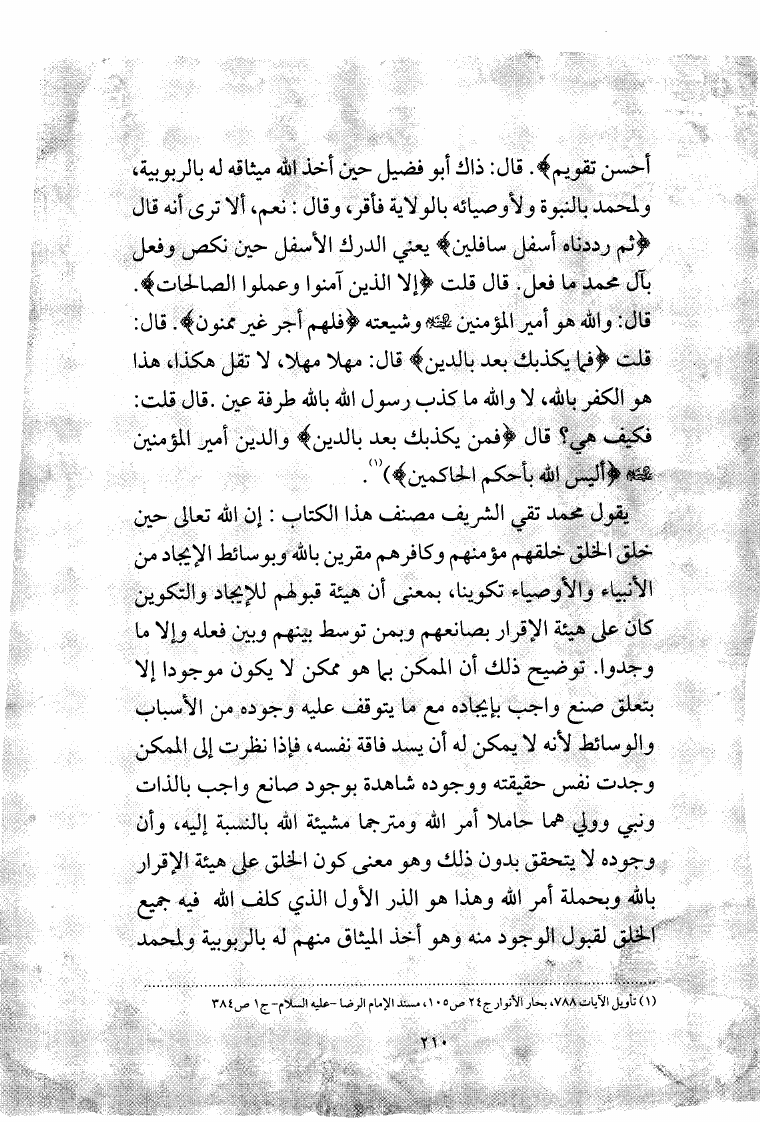 أحسن تقويم﴾. قال: ذاك أبو فضيل حين أخذ الله ميثاقه له بالربوبية،
ولمحمد بالنبوة ولأوصيائه بالولاية فأقر، وقال : نعم، ألا ترى أنه قال
﴿ثم رددناه أسفل سافلين﴾ يعني الدرك الأسفل حين نكص وفعل
بآل محمد ما فعل. قال قلت ﴿إلا الذين آمنوا وعملوا الصالحات﴾.
قال: والله هو أمير المؤمنين وشيعته ﴿فلهم أجر غير ممنون﴾. قال:
قلت ﴿فما يكذبك بعد بالدين﴾ قال: مهلا مهلا، لا تقل هكذا، هذا
هو الكفر بالله، لا والله ما كذب رسول الله بالله طرفة عين .قال قلت:
فكيف هي؟ قال ﴿فمن يكذبك بعد بالدين﴾ والدين أمير المؤمنين
﴿أليس الله بأحكم الحاكمين﴾)(١).
يقول محمد تقي الشريف مصنف هذا الكتاب : إن الله تعالى حين
خلق الخلق خلقهم مؤمنهم وكافرهم مقرين بالله وبوسائط الإيجاد من
الأنبياء والأوصياء تكوينا، بمعنى أن هيئة قبولهم للإيجاد والتكوين
كان على هيئة الإقرار بصانعهم وبمن توسط بينهم وبين فعله وإلا ما
وجدوا. توضيح ذلك أن الممكن بما هو ممكن لا يكون موجودا إلا
بتعلق صنع واجب بإيجاده مع ما يتوقف عليه وجوده من الأسباب
والوسائط لأنه لا يمكن له أن يسد فاقة نفسه، فإذا نظرت إلى الممكن
وجدت نفس حقيقته ووجوده شاهدة بوجود صانع واجب بالذات
ونبي وولي هما حاملا أمر الله ومترجما مشيئة الله بالنسبة إليه، وأن
وجوده لا يتحقق بدون ذلك وهو معنى كون الخلق على هيئة الإقرار
بالله وبحملة أمر الله وهذا هو الذر الأول الذي كلف الله فيه جميع
الخلق لقبول الوجود منه وهو أخذ الميثاق منهم له بالربوبية ولمحمد
(١) تأويل الآيات ٧٨٨، بحار الأنوار ج٢٤ ص١٠٥، مسند الإمام الرضا -عليه السلام- ج١ ص٣٨٤
٢١٠